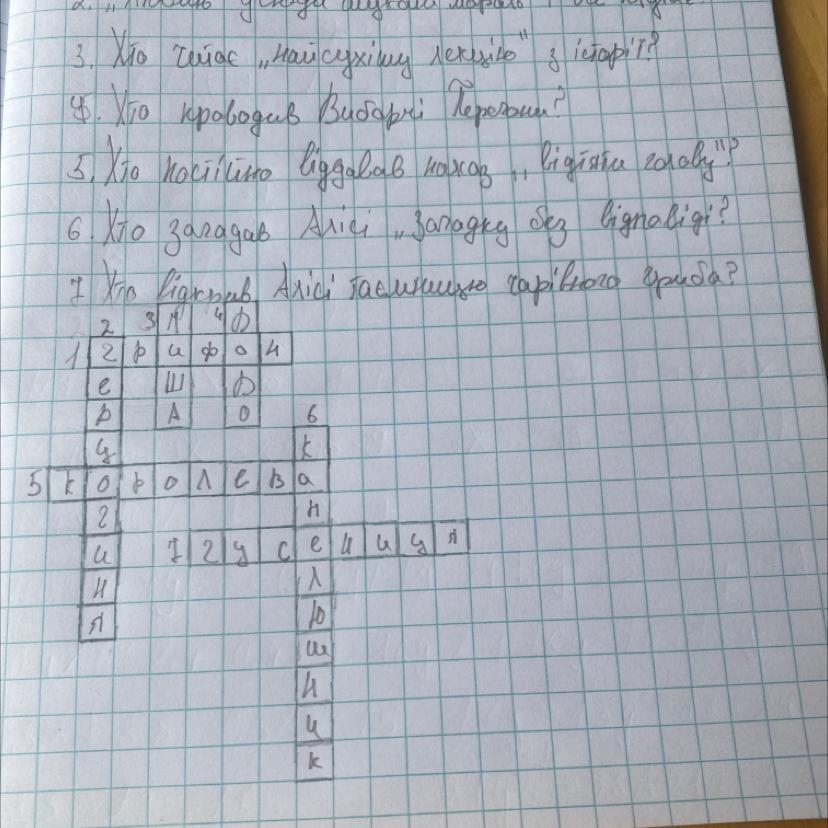 2. „Любить усюди шукати мораль
3. Хто читає „найсухішу лекцію“ з історії?
4. Хто проводив Виборчі Перегони?
5. Хто постійно віддавав наказ „відітни голову“?
6. Хто загадав Алісі „загадку без відповіді?
7 Хто відкрив Алісі таємницю чарівного гриба?
2 3 М 4 Д
1 г р и ф о н
е Ш Д
р А О 6
ц к
5 к о р о л е в а
г п
и 7 г у с е н и ц я
н л
я ю
ш
н
и
к